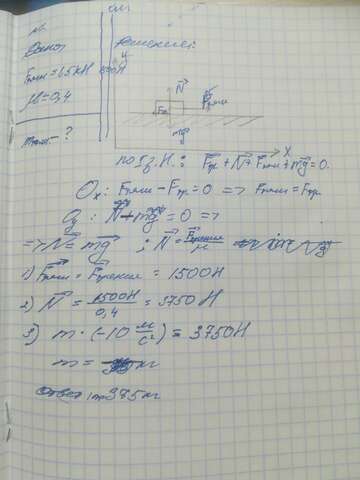 Дано
μ=0,4
Решение:
y
N
Fтр
mg
X
по I з. Н. : Fтр + N + Fтяги + mg = 0.
Ox: Fтяги - Fтр = 0 => Fтяги = Fтр.
Oy: N + mg = 0 =>
=> N = mg ; N = Fтрения/μ
1) Fтяги = Fтрения = 1500H
2) N = 1500H/0,4 = 3750 H
3) m · (-10 м/с²) = 3750H
m = кг
Ответ: m 375 кг